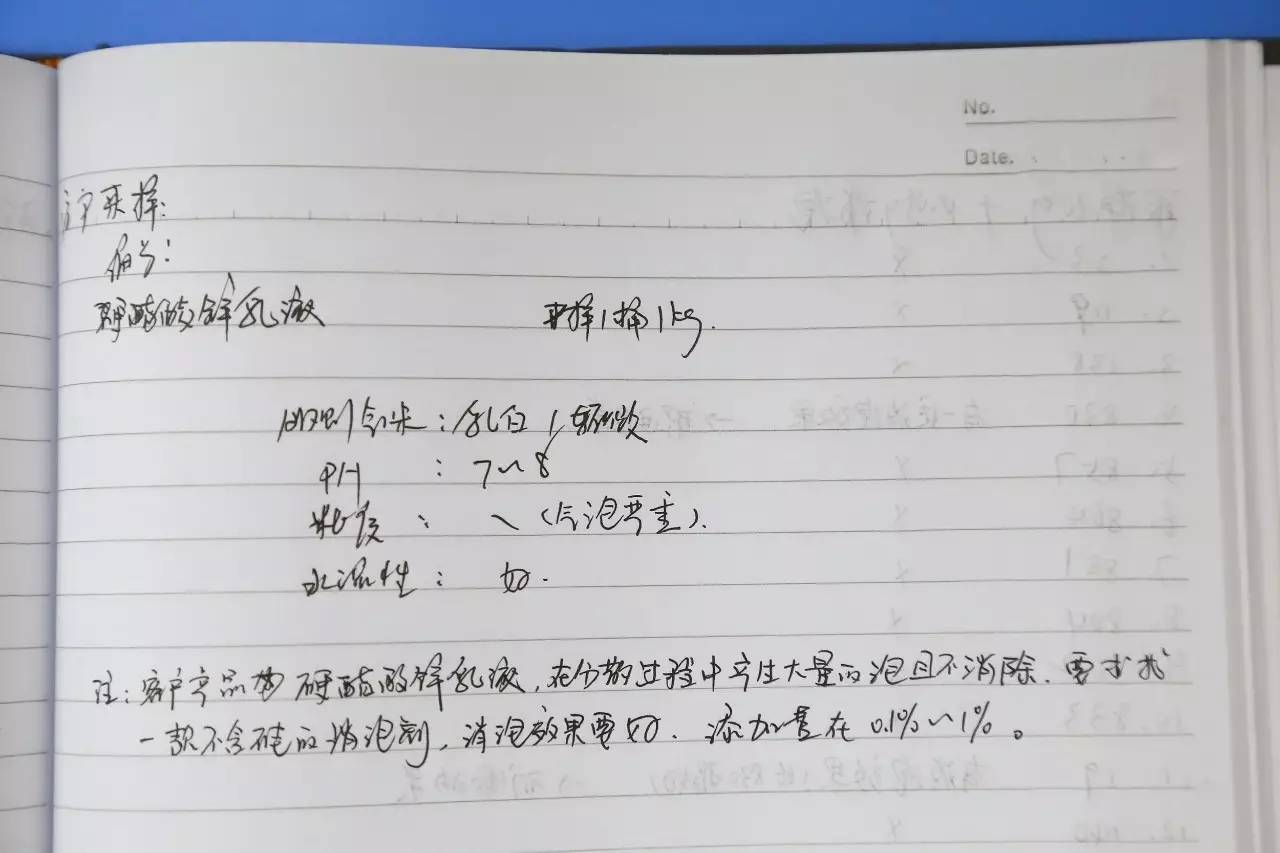 No.
Date.
客户来样:
编号:
硬酯酸锌乳液 来样1桶1kg.
外观: 乳白
PH : 7~8
粘度 : (气泡严重).
水溶性: 好.
注: 客户产品为硬酯酸锌乳液, 在分散过程中产生大量的泡且不消除. 要求找
一款不含硅的消泡剂, 消泡效果要好. 添加量在 0.1%~1%。